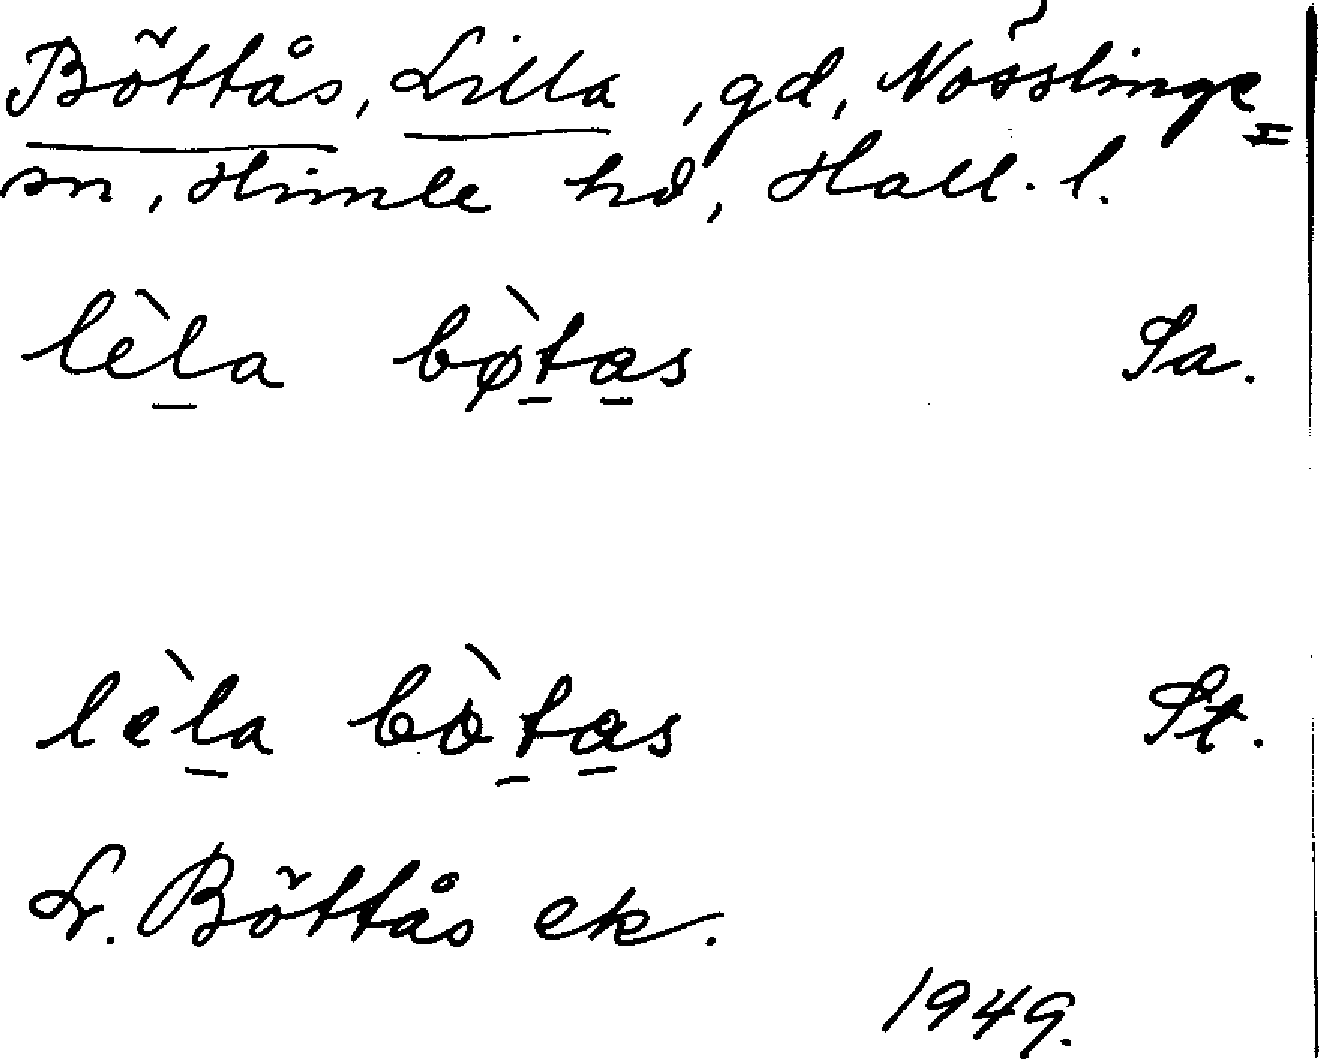 Böttås, Lilla, gd, Nösslinge=
sn, Himle hd, Hall. l.
lèla bø̀tas Sa.
lèla bòtas St.
L. Böttås ek.
1949.